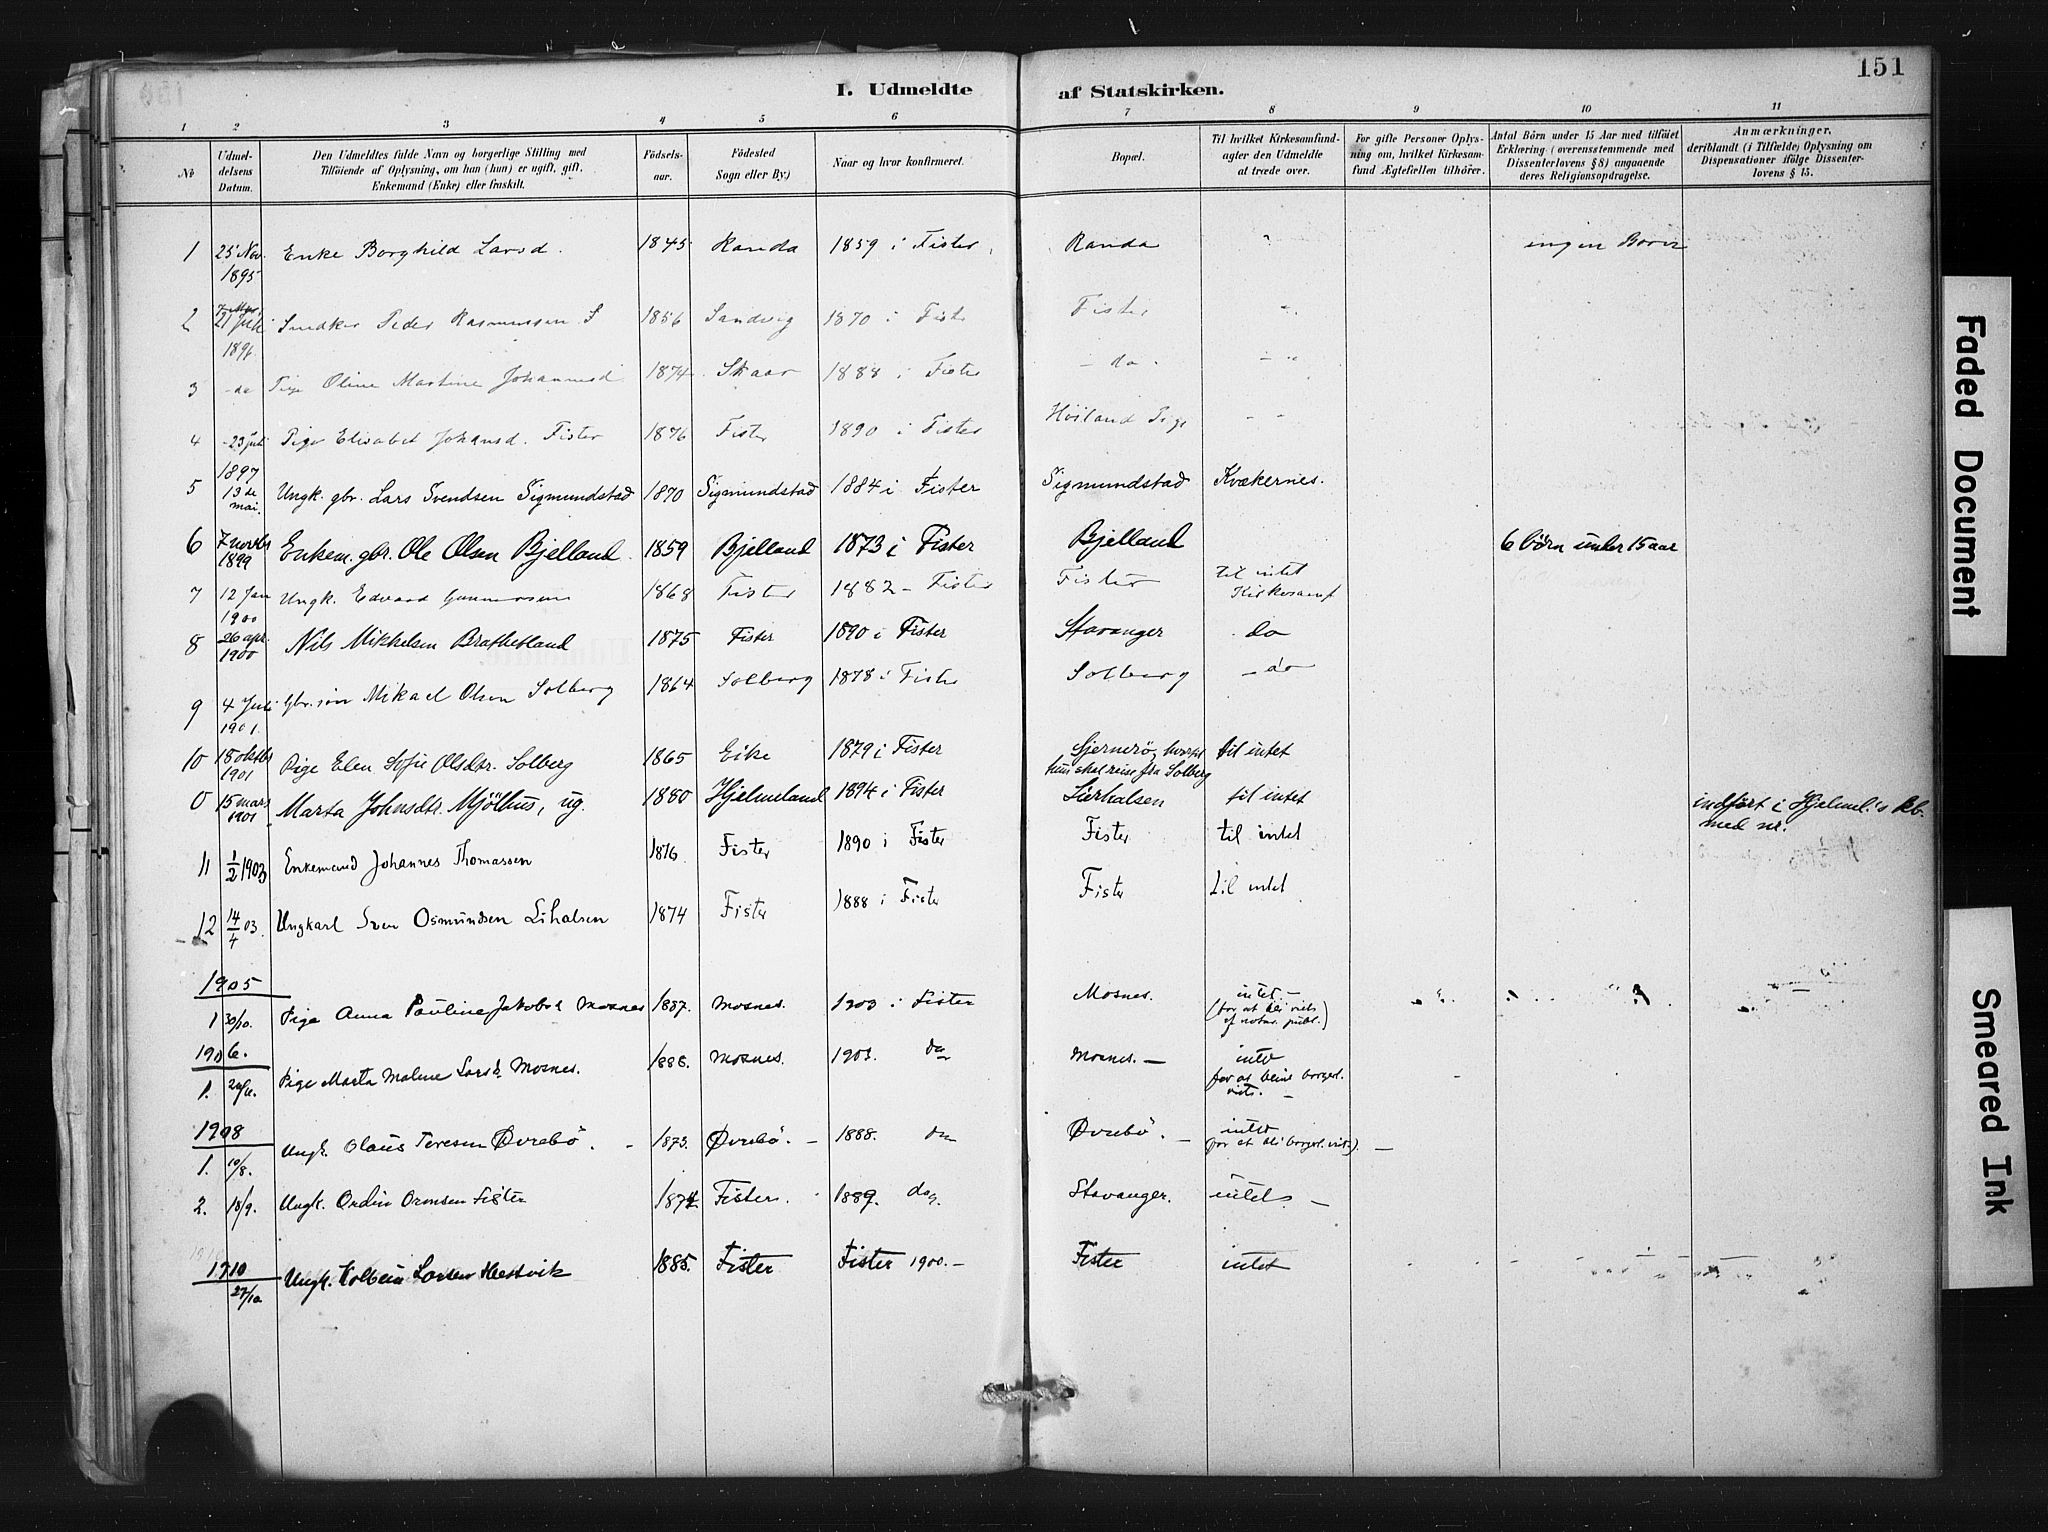 151
I. Udmeldte af Statskirken.
1 2 3 4 5 6 7 8 9 10 11
№
Udmel-
delsens
Datum.
Den Udmeldtes fulde Navn og borgerlige Stilling med
Tilføiende af Oplysning, om han (hun) er ugift, gift,
Enkemand (Enke) eller fraskilt.
Fødsels-
aar.
Fødested
Sogn eller By)
Naar og hvor konfirmeret.
Bopæl.
Til hvilket Kirkesamfund-
agter den Udmeldte
at træde over.
For gifte Personer Oplys-
ning om, hvilket Kirkesam-
fund Ægtefællen tilhører.
Antal Børn under 15 Aar med tilføiet
Erklæring (overensstemmende med
Dissenterlovens § 8) angaaende
deres Religionsopdragelse.
Anmærkninger,
deriblandt (i Tilfælde) Oplysning om
Dispensationer ifølge Dissenter-
lovens § 15.
1 25 Nov. 1895 Enke Borghild Larsd. 1845 Randa 1859 i Fister Randa " ingen Børn
2 21 Juli 1896 Peder Rasmussen S 1856 Sandvig 1870 i Fister Fister "
3 - do Pige Oline Martine Johannesd 1874 Skaar 1888 i Fister - do - - "
4 - 23 Juli Pige Elisabet Johansd. Fister 1876 Fister 1890 i Fister Høiland - -
5 1897 13de mai. Ungk. gbr. Lars Svendsen Sigmundstad 1870 Sigmundstad 1884 i Fister Sigmundstad Kvækernes.
6 7 novbr 1899 Enkem. gbr. Ole Olsen Bjelland 1859 Bjelland 1873 i Fister Bjelland 6 børn under 15 aar
7 12 Jan 1900 Ungk. Edvard Gunnarsen 1868 Fister 1882 - Fister Fister til intet Kirkesamf
8 26 apr. 1900 Nils Mikkelsen Brathetland 1875 Fister 1890 i Fister Stavanger do
9 4 Juli 1901. Gbr. søn Mikael Olsen Solberg 1864 Solberg 1878 i Fister Solberg - do
10 18 oktbr 1901 Pige Elen Sofie Olsdtr. Solberg 1865 Eike 1879 i Fister Sjernerö, hvortil til intet
hun skal reise fra Solberg
0 15 mars 1901 Marta Johnsdtr. Mjölhus, ug. 1880 Hjelmeland 1894 i Fister til intet indført i Hjelmel.'s kb.
med nr.
11 1/2 1903 Enkemand Johannes Thomassen 1876 Fister 1890 i Fister Fister til intet
12 14/4 03. Ungkarl Sven Osmundsen Lihalsen 1874 Fister 1888 i Fister Fister til intet
1905
1 30/10. Pige Anna Pauline Jakobsd. Mosnes 1887. Mosnes. 1903 i Fister Mosnes. intet. -
(for at bli viet
af notar. publ.)
1906.
1. Pige Marta Malene Larsd. Mosnes. 1888. Mosnes. 1903. do Mosnes. - intet
for at borgerl.
viet. -
1908
1. 10/8. Ungk. Olaus Teresen Øvrebö. - 1873. Øvrebö. - 1888. do Øvrebö. - intet
(for at bli borgerl. viet). -
2. 18/9. Ungk. Ordin Ormsen Fister 1874 Fister. 1889. do. Stavanger. intet. -
1910
27/10 Ungk. Kolbein Larsen Hestvik 1885. Fister Fister 1900. - Fister intet
Faded Document
Smeared Ink